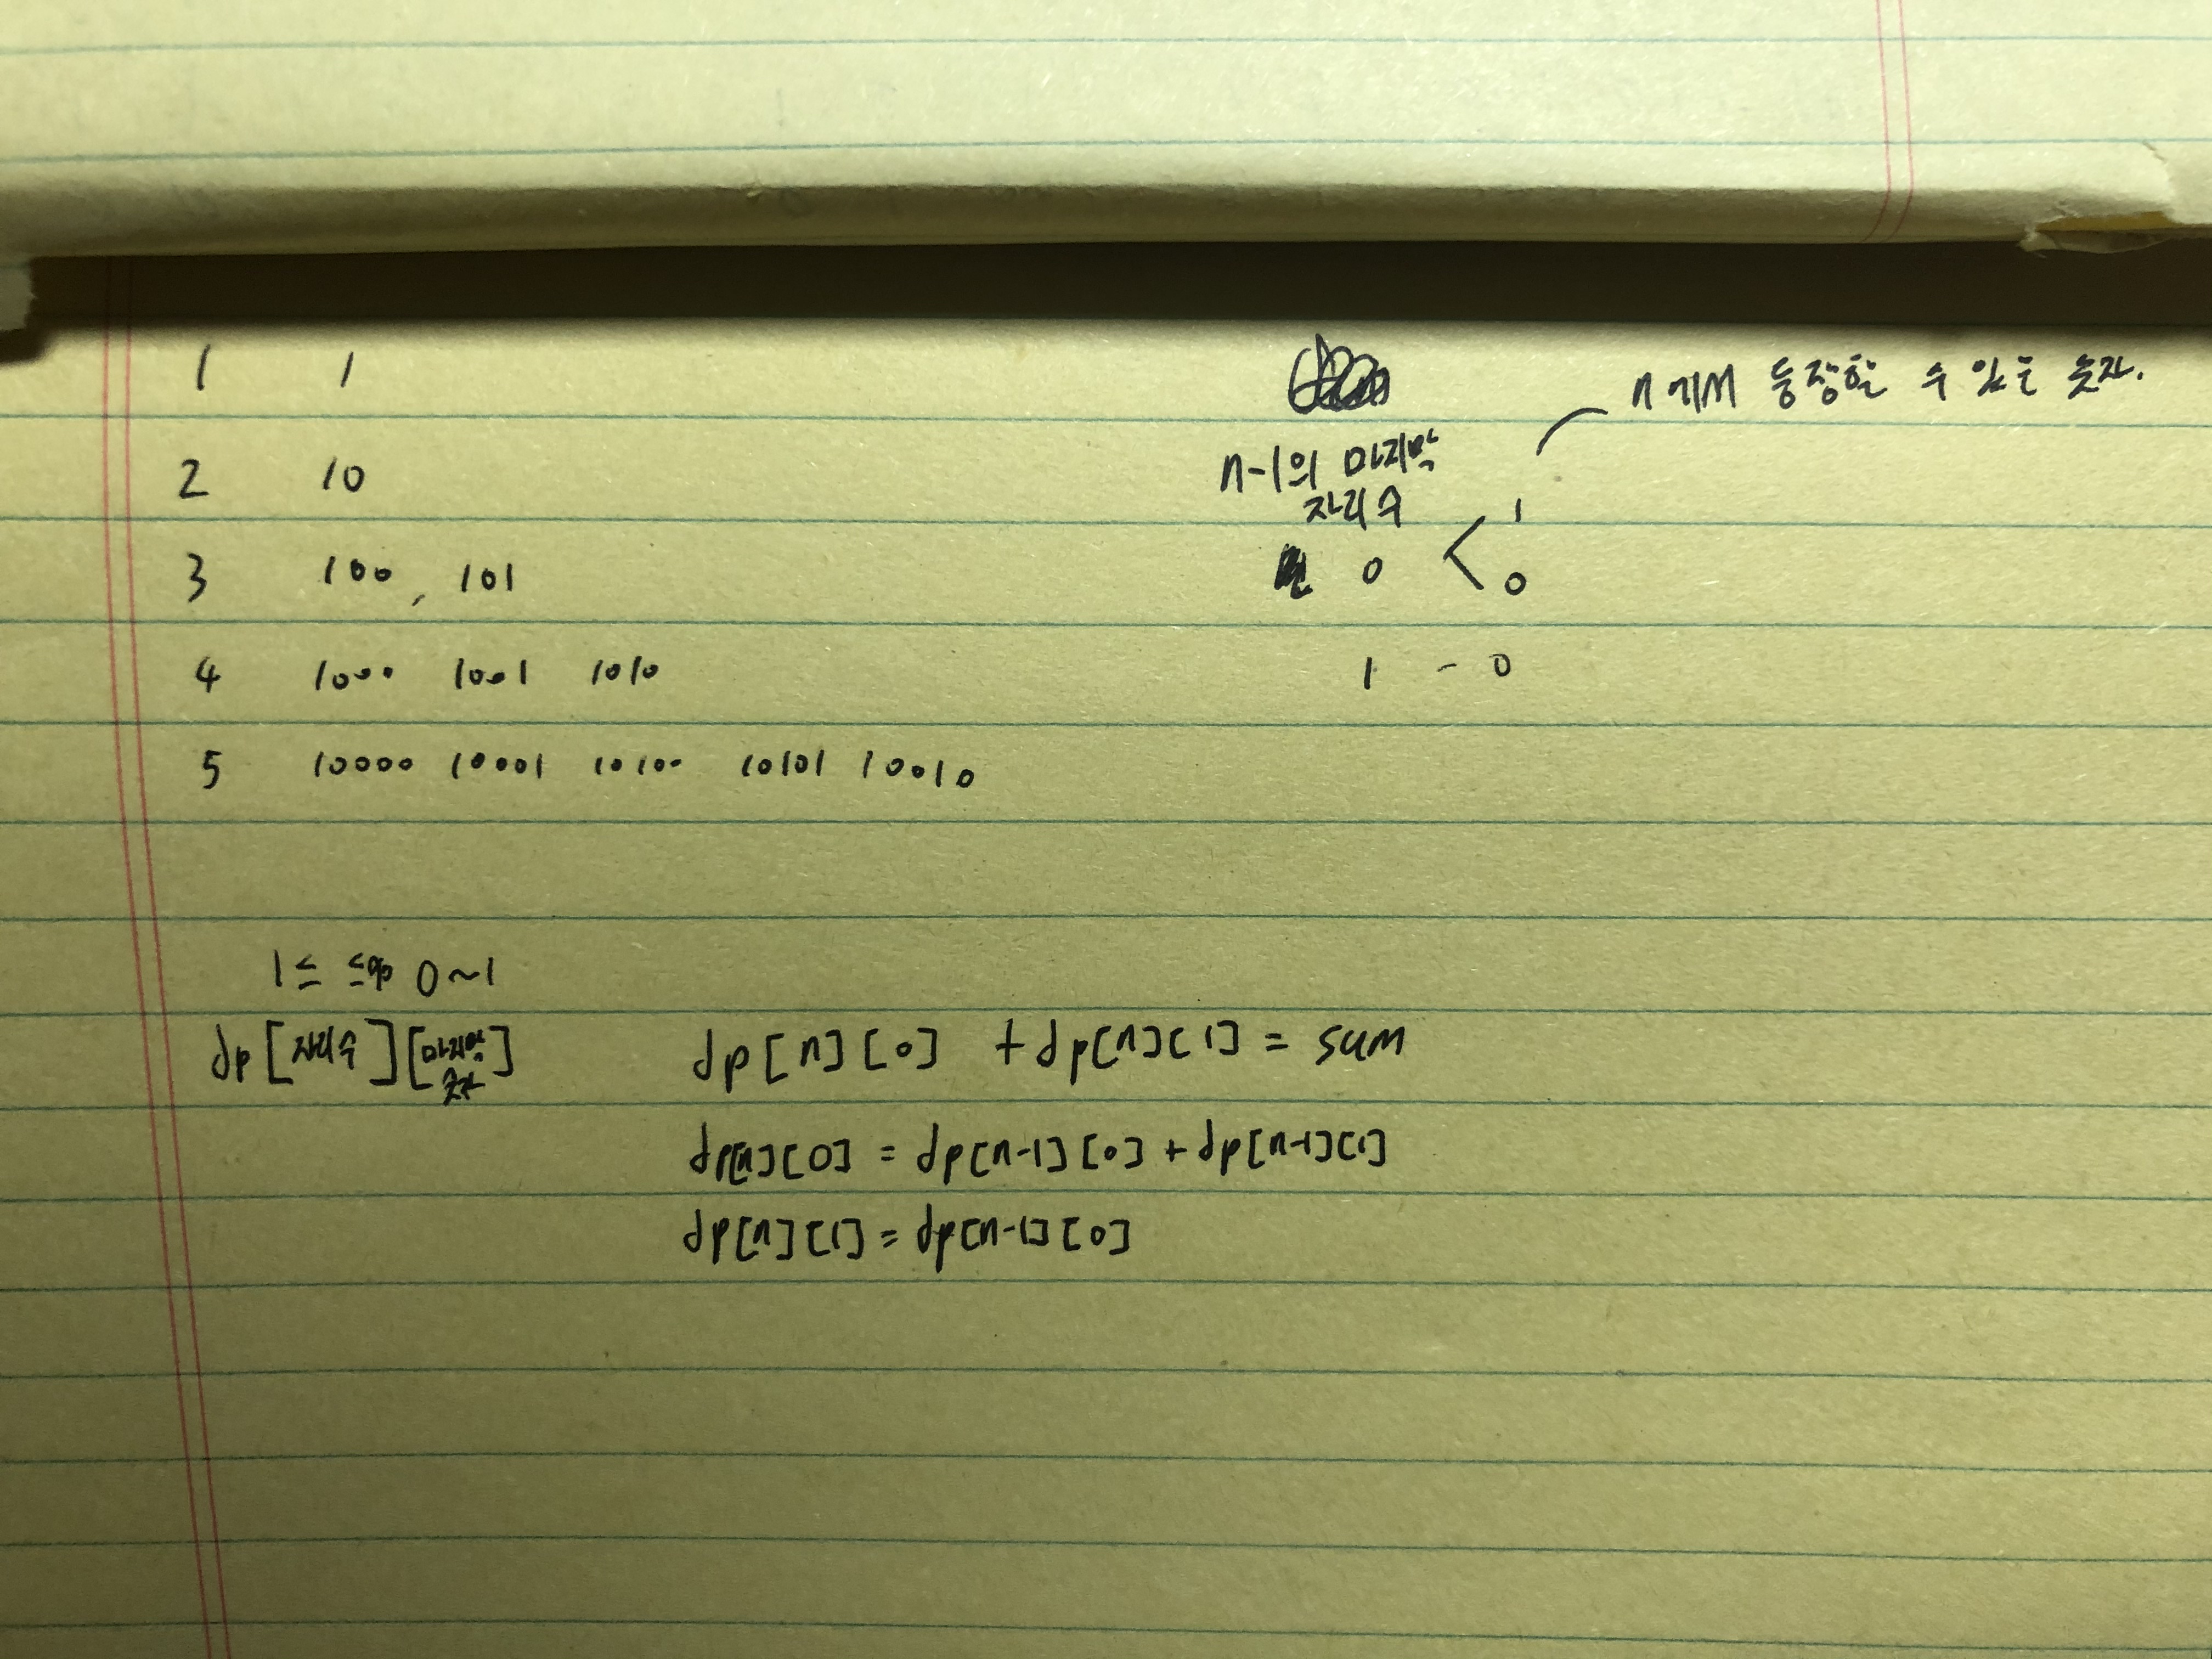 1 1
2 10
3 100 , 101
4 1000 1001 1010
5 10000 10001 10100 10101 10010
n에서 등장할 수 있는 숫자.
n-1의 마지막
자리수
1
0 <
0
1 - 0
1≤ ≤90 0~1
dp[자리수][마지막
숫자]
dp[n][0] + dp[n][1] = sum
dp[n][0] = dp[n-1][0] + dp[n-1][1]
dp[n][1] = dp[n-1][0]